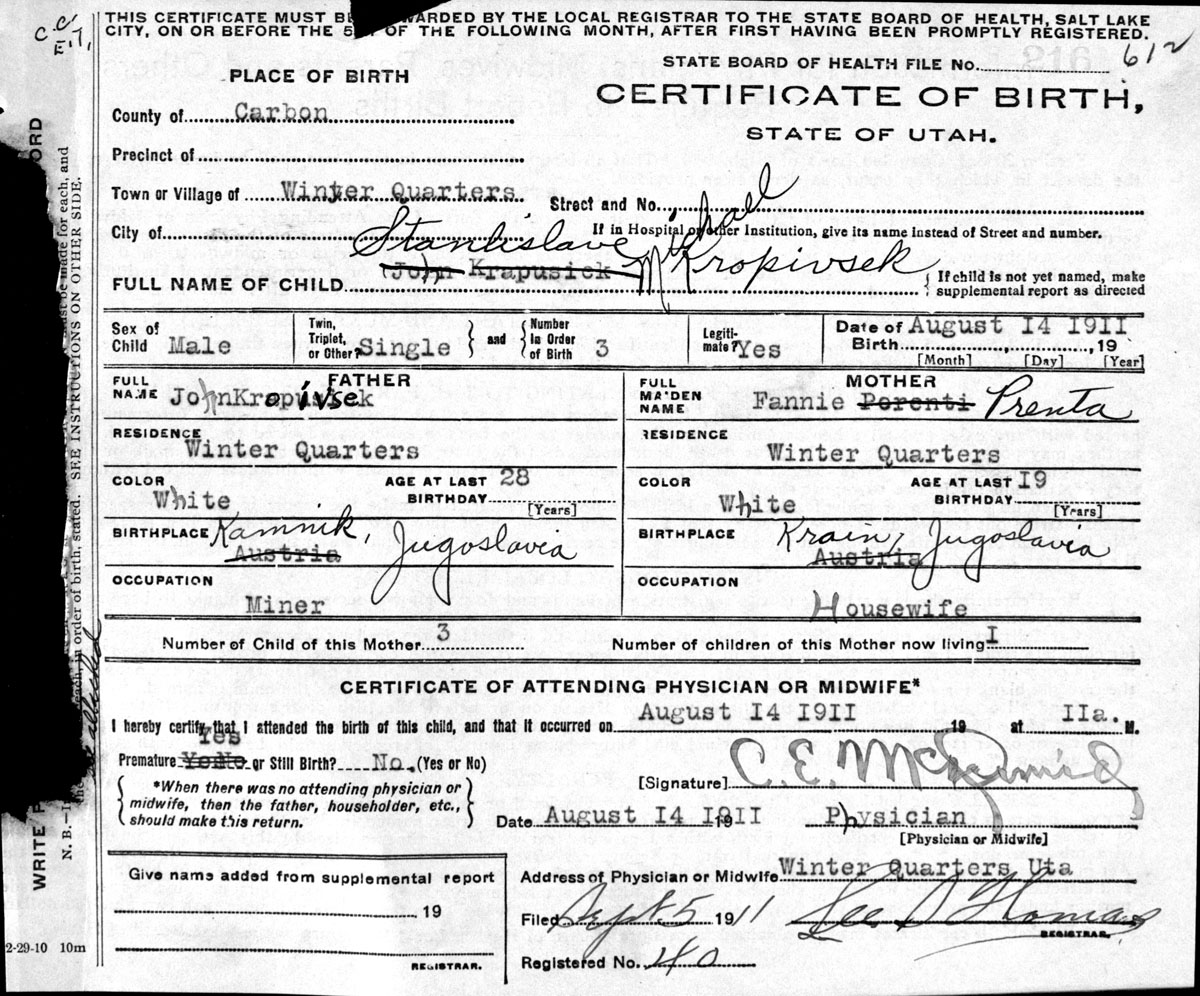 C.C.
F.T.
THIS CERTIFICATE MUST BE WARDED BY THE LOCAL REGISTRAR TO THE STATE BOARD OF HEALTH, SALT LAKE
CITY, ON OR BEFORE THE 5 OF THE FOLLOWING MONTH, AFTER FIRST HAVING BEEN PROMPTLY REGISTERED.
STATE BOARD OF HEALTH FILE No. 612
PLACE OF BIRTH
CERTIFICATE OF BIRTH,
STATE OF UTAH.
County of Carbon
Precinct of
Town or Village of Winter Quarters
Street and No.
City of
If in Hospital or other Institution, give its name instead of Street and number.
Stanislave Michael Kropivsek
FULL NAME OF CHILD (John Krapusick
{ If child is not yet named, make
supplemental report as directed
Sex of Child Male
Twin, Triplet, or Other? Single
and
Number in Order of Birth 3
Legiti-mate? Yes
Date of Birth August 14 1911 , 19
[Month] [Day] [Year]
FULL NAME FATHER
John Krapusick
o ivsek
RESIDENCE Winter Quarters
COLOR White
AGE AT LAST BIRTHDAY 28 [Years]
BIRTHPLACE Kamnik, Jugoslavia
Austria
OCCUPATION
Miner
FULL MAIDEN NAME MOTHER
Fannie Porenti Prenta
RESIDENCE Winter Quarters
COLOR White
AGE AT LAST BIRTHDAY 19 [Years]
BIRTHPLACE Krain, Jugoslavia
Austria
OCCUPATION
Housewife
Number of Child of this Mother 3
Number of children of this Mother now living I
CERTIFICATE OF ATTENDING PHYSICIAN OR MIDWIFE*
I hereby certify that I attended the birth of this child, and that it occurred on August 14 1911 19 at IIa. M.
Yes
Premature or Still Birth? No. (Yes or No)
*When there was no attending physician or
midwife, then the father, householder, etc.,
should make this return.
[Signature] C. E. McDermid
Date August 14 1911 Physician
[Physician or Midwife]
Give name added from supplemental report
19
REGISTRAR.
Address of Physician or Midwife Winter Quarters Uta
Filed Sept. 5 1911 Lee S Thomas
REGISTRAR.
Registered No. 40
2-29-10 10m
WRITE P
ORD
N. B.—I
ust be made for each, and
each, in order of birth, stated. SEE INSTRUCTIONS ON OTHER SIDE.